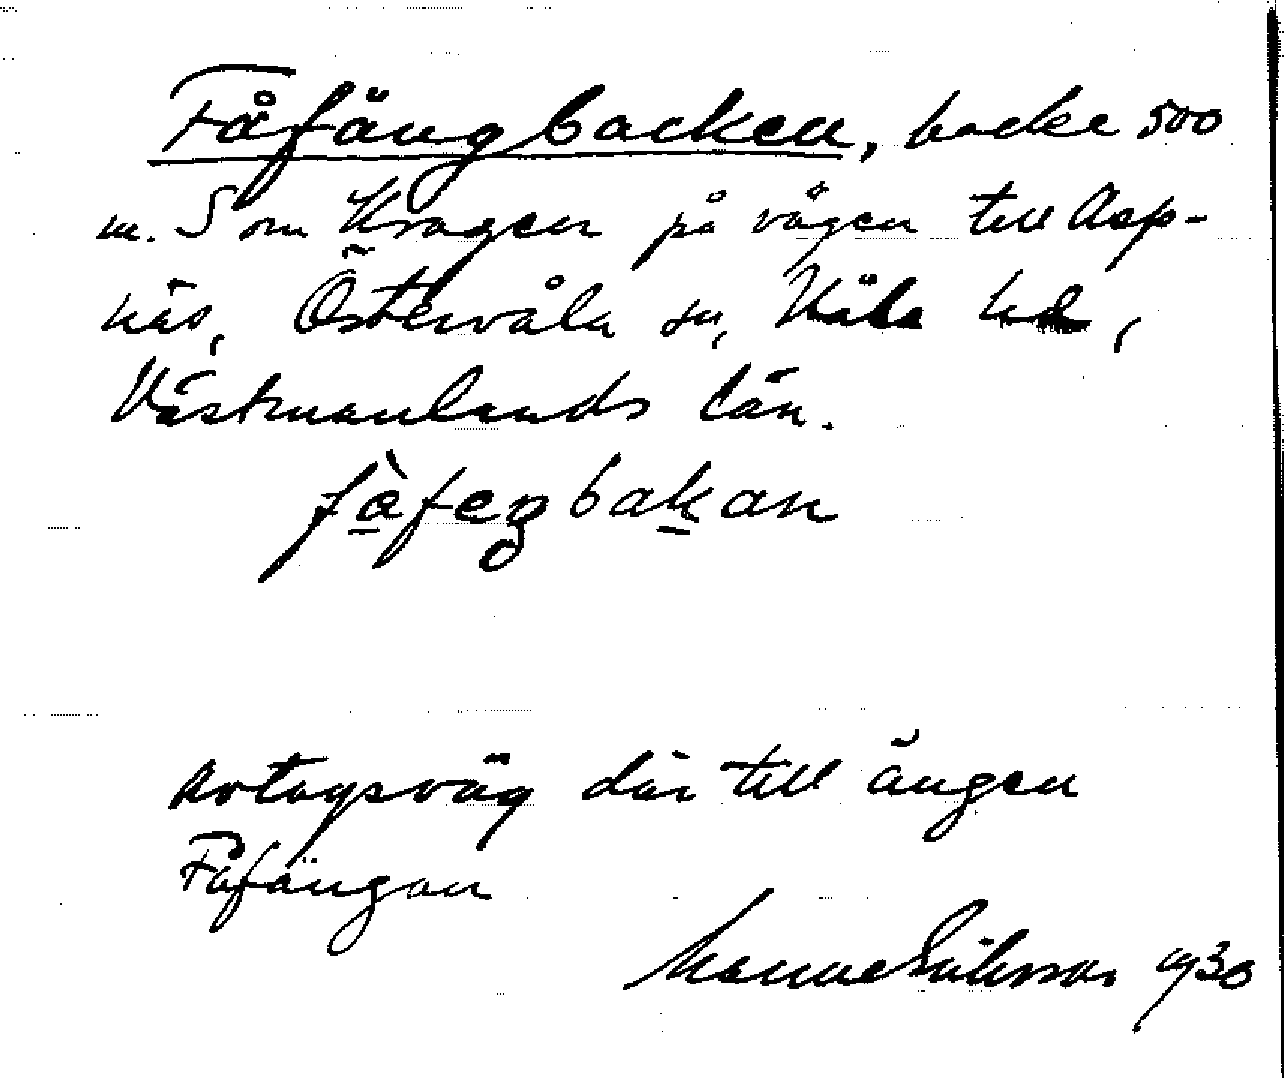 Fåfängbacken, backe 500
m. S om Kragen på vägen till Asp-
näs, Östervåla sn, Våla hd,
Västmanlands län.
fàfeŋbakan
Avtagsväg där till ängen
Fåfängan
Manne Eriksson 1930